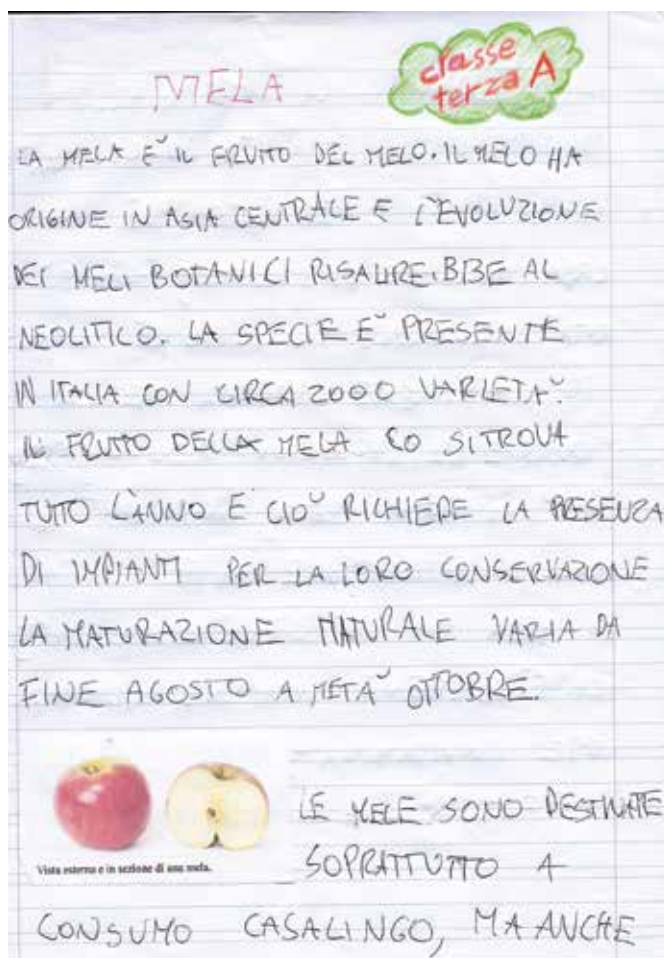 classe
terza A
MELA
LA MELA E' IL FRUTTO DEL MELO. IL MELO HA
ORIGINE IN ASIA CENTRALE E L'EVOLUZIONE
DEI MELI BOTANICI RISALIREBBE AL
NEOLITICO. LA SPECIE E' PRESENTE
IN ITALIA CON CIRCA 2000 VARIETA'.
IL FRUTTO DELLA MELA LO SI TROVA
TUTTO L'ANNO E CIO' RICHIEDE LA PRESENZA
DI IMPIANTI PER LA LORO CONSERVAZIONE
LA MATURAZIONE NATURALE VARIA DA
FINE AGOSTO A META' OTTOBRE.
Vista esterna e in sezione di una mela.
LE MELE SONO DESTINATE
SOPRATTUTTO A
CONSUMO CASALINGO, MA ANCHE